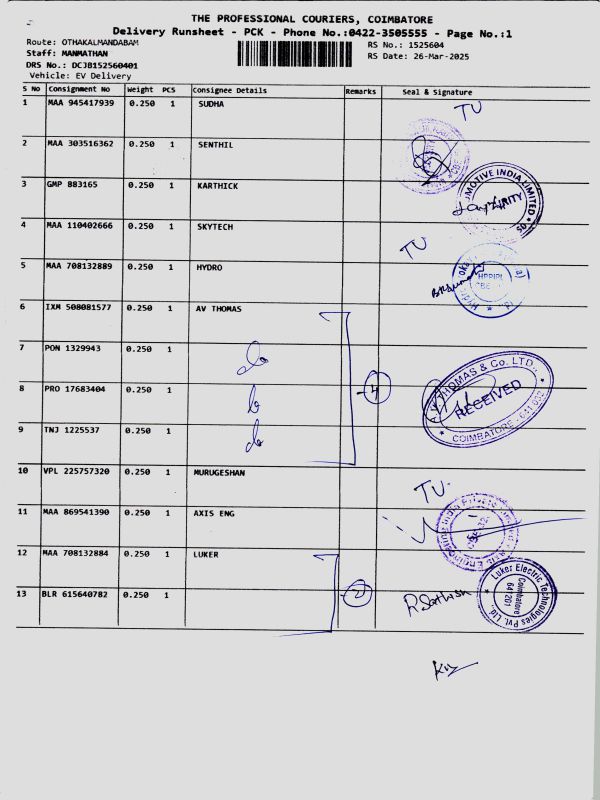 THE PROFESSIONAL COURIERS, COIMBATORE
Delivery Runsheet - PCK - Phone No.:0422-3505555 - Page No.:1
Route: OTHAKALMANDABAM
RS No.: 1525604
Staff: MANMATHAN
RS Date: 26-Mar-2025
DRS No.: DCJB152560401
Vehicle: EV Delivery
S No Consignment No Weight PCS Consignee Details Remarks Seal & Signature
1 MAA 945417939 0.250 1 SUDHA TU
2 MAA 303516362 0.250 1 SENTHIL
3 GMP 883165 0.250 1 KARTHICK
MOTIVE INDIA LIMITED
4 MAA 110402666 0.250 1 SKYTECH TU
5 MAA 708132889 0.250 1 HYDRO
6 IXM 508081577 0.250 1 AV THOMAS
7 PON 1329943 0.250 1 do
8 PRO 17683404 0.250 1 do 4
9 TNJ 1225537 0.250 1 do
A.V. THOMAS & Co. LTD.,
RECEIVED
COIMBATORE - 641 032
10 VPL 225757320 0.250 1 MURUGESHAN TU
11 MAA 869541390 0.250 1 AXIS ENG
12 MAA 708132884 0.250 1 LUKER
13 BLR 615640782 0.250 1 2 R Sathish
Luker Electric Technologies Pvt. Ltd.,
Coimbatore
641 201